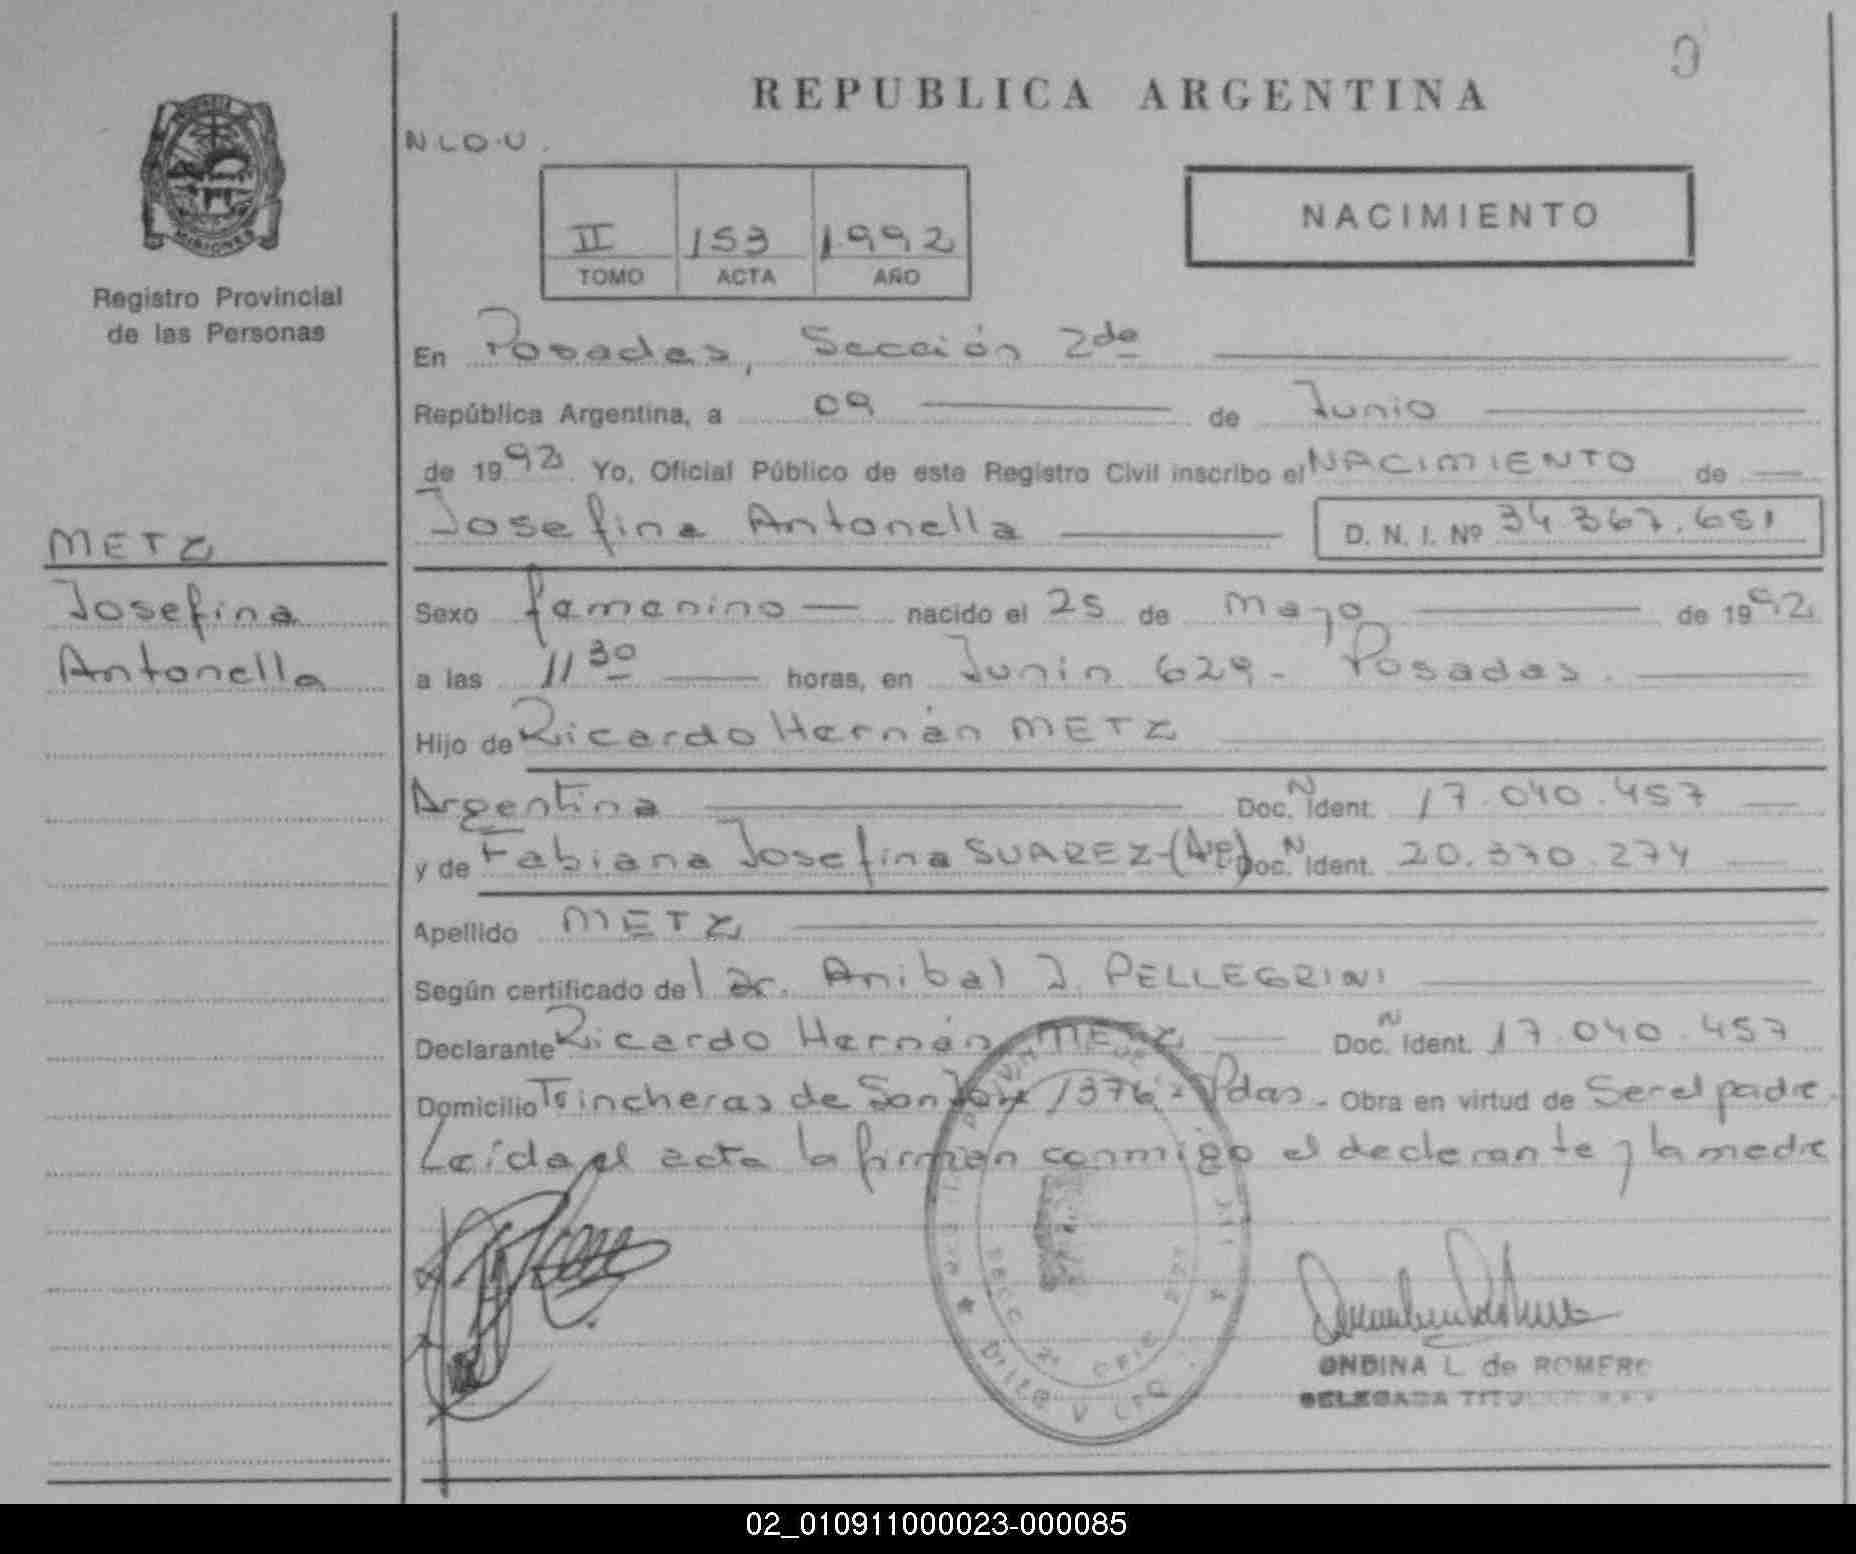 REPUBLICA ARGENTINA
N L O. U.
II 153 1.992
TOMO ACTA AÑO
NACIMIENTO
MISIONES
Registro Provincial
de las Personas
METZ
Josefina
Antonella
En Posadas, Sección 2da
República Argentina, a 09 de Junio
de 1992 Yo, Oficial Público de este Registro Civil inscribo el NACIMIENTO de
Josefina Antonella D. N. I. Nº 34 367.651
Sexo femenino nacido el 25 de Mayo de 1992
a las 11 30 horas, en Junin 629 - Posadas.
Hijo de Ricardo Hernán METZ
Argentina Doc. N Ident. 17.040.457
y de Fabiana Josefina SUAREZ - (Arg) Doc. N Ident. 20.370.274
Apellido METZ
Según certificado del Dr. Anibal J. PELLEGRINI
Declarante Ricardo Hernán METZ Doc. N Ident. 17.040.457
Domicilio Trincheras de San José 1376 - Pdas. Obra en virtud de Ser el padre.
Leída el acta la firman conmigo el declarante y la madre
ONDINA L. de ROMERO
DELEGADA TITULAR
02_010911000023-000085